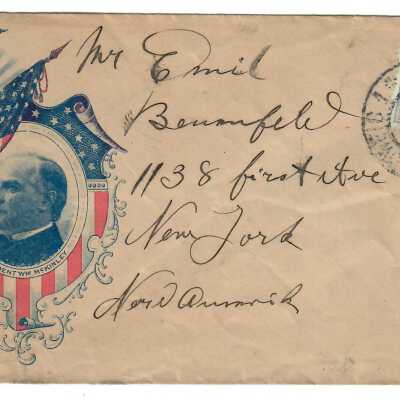 Mr Emil
Baumfeld
1138 first Ave
New York
Nord Amerika
DENT WM McKINLEY